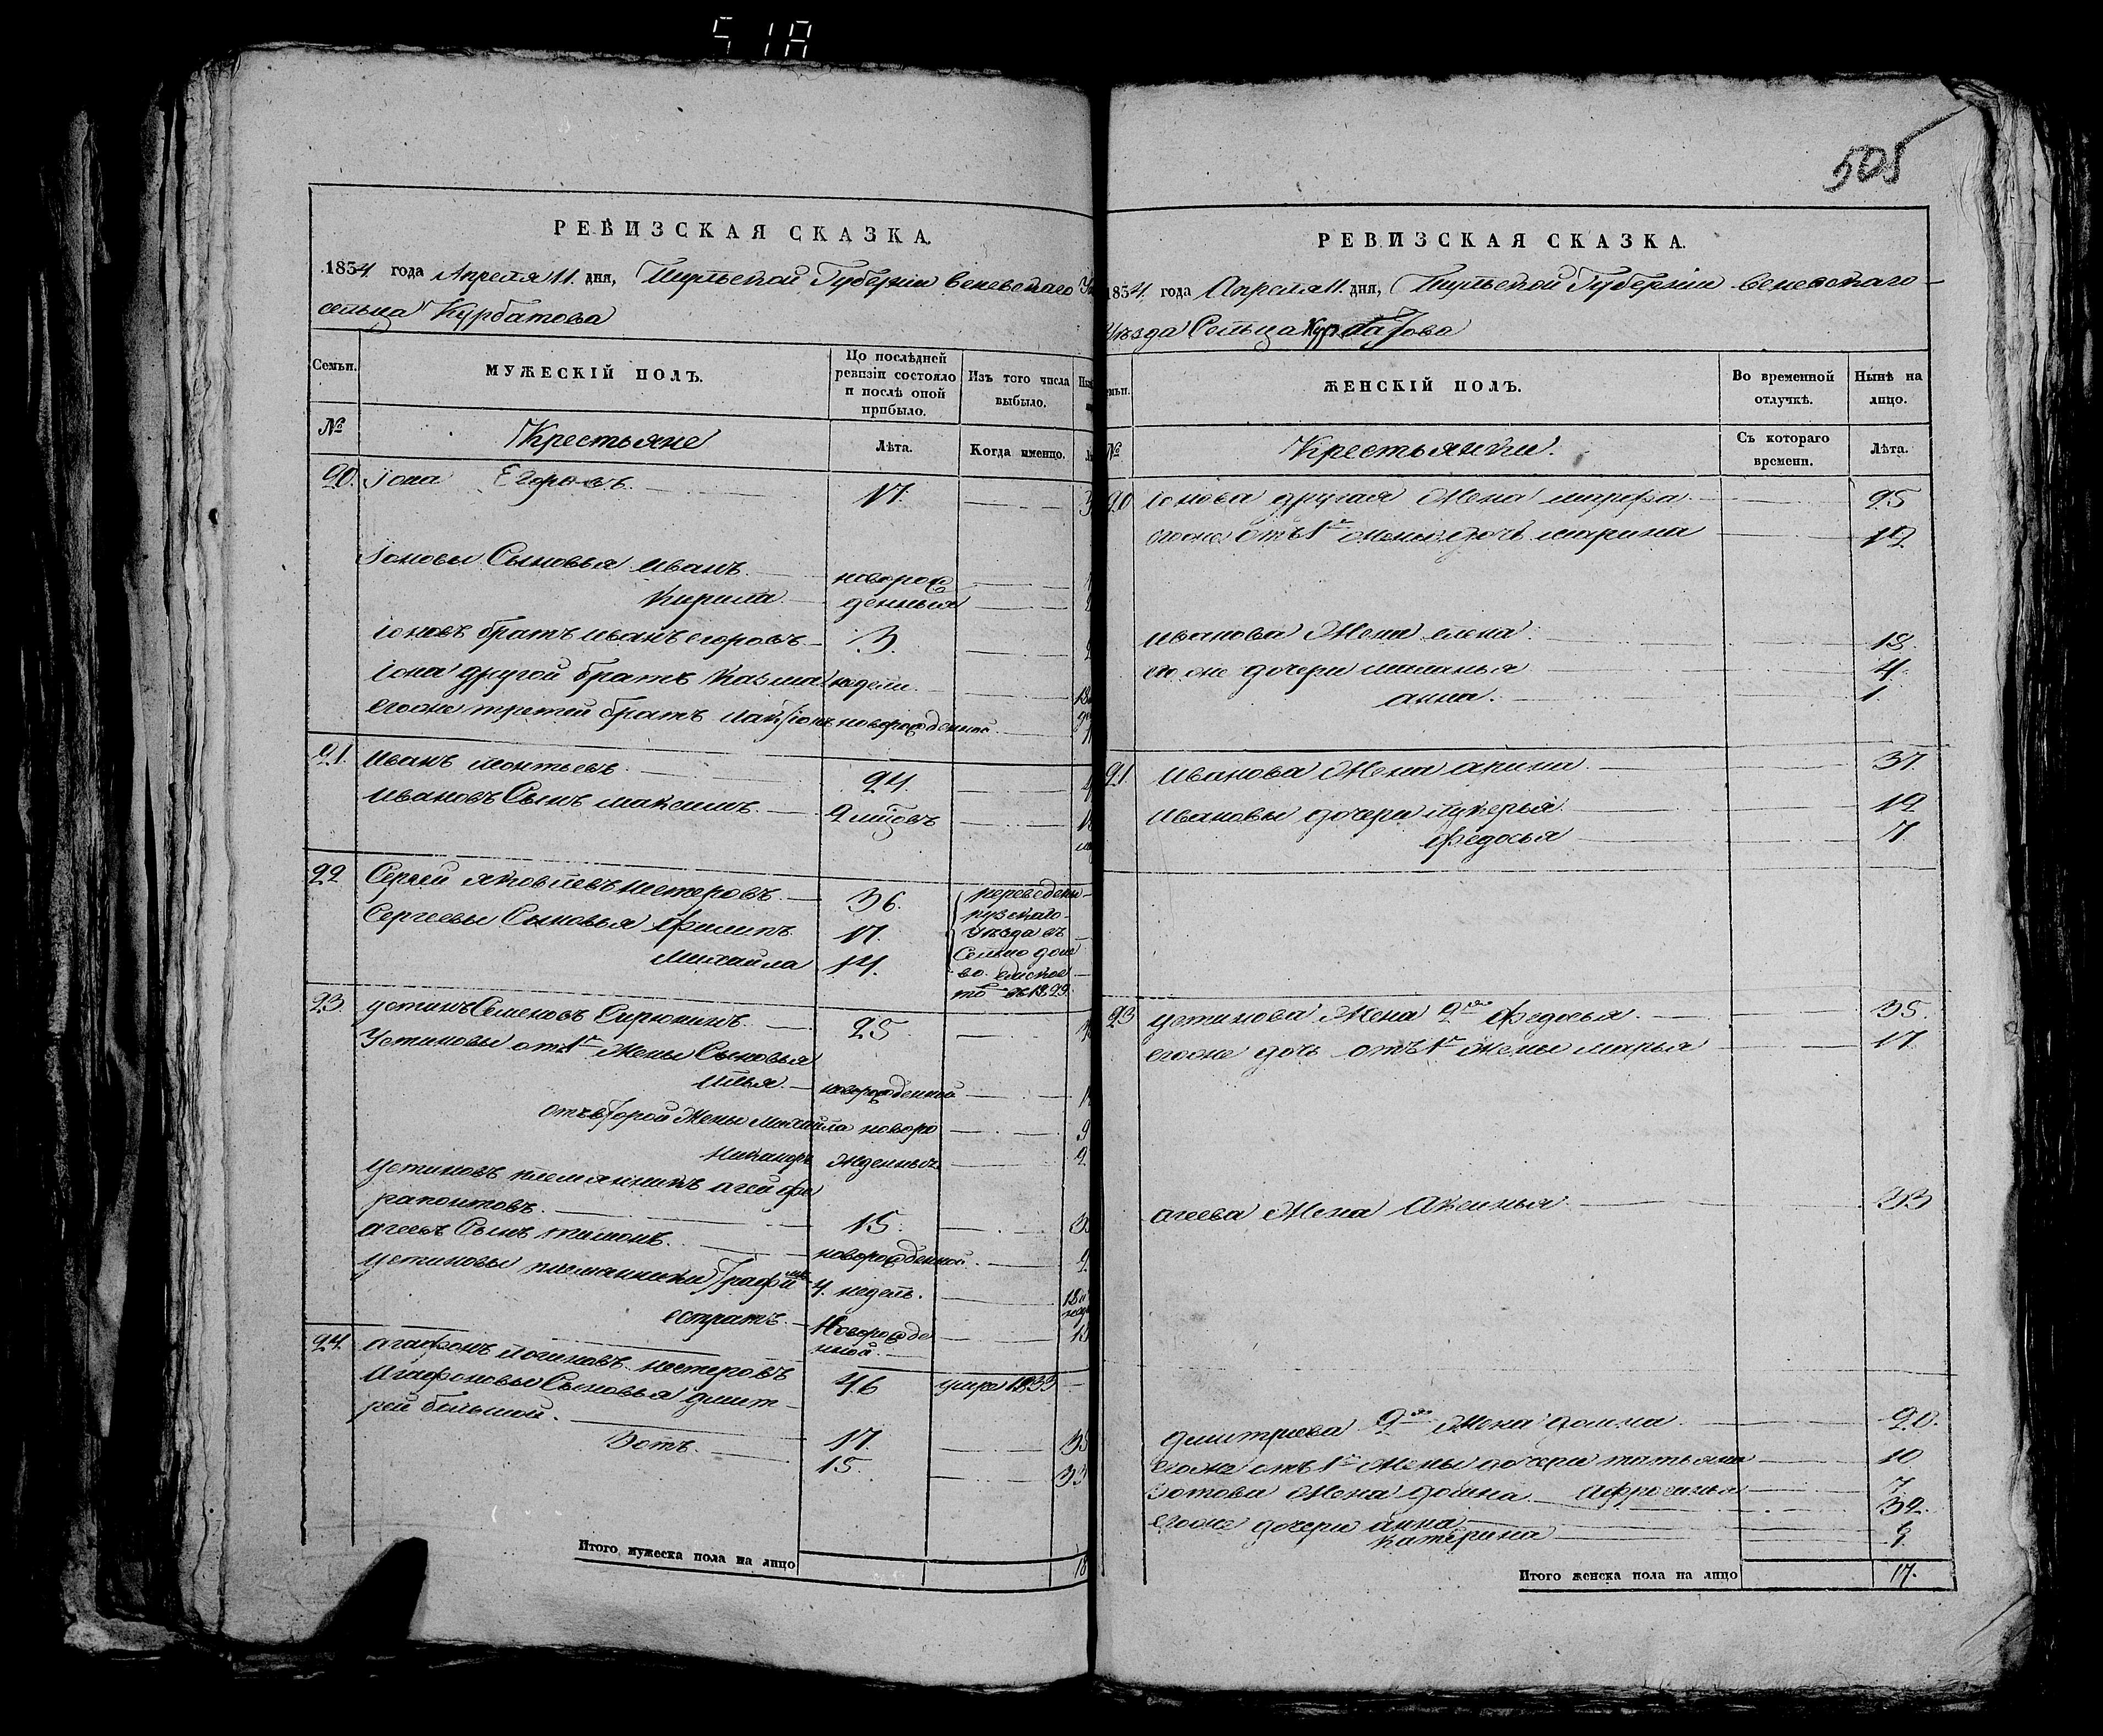 51A
РЕВИЗСКАЯ СКАЗКА.
1834 года Апреля 11. дня, Тульской Губернии Веневского
сельца Курбатова
Семьи.
МУЖЕСКІЙ ПОЛЪ.
По послѣдней ревизіи состояло и послѣ оной прибыло.
Изъ того числа выбыло.
№
Крестьяне
Лѣта.
Когда именно.
20. Іона Егоровъ. 17.
Іоновы Сыновья Иванъ новорож
Кирила денныя
Іоновъ братъ иванъ егоровъ 3.
Іона другой братъ Казма недели
егоже третей братъ новорожденной
21. Иванъ леонтьевъ. 24.
Ивановъ Сынъ максимъ. 2 
22 Сергей яковлевъ нестеровъ. 36. переведены
Сергеевы Сыновья Филипъ 17. уезда въ
Михайла 14. Сельцо
въ 1822.
23. устинъ Семеновъ Сирюкинъ. 25
Устиновы отъ 1й Жены Сыновья
илья. новорожденной
отъ второй Жены Михайла новоро 9
Никаноръ жденныя 2
устиновъ племянникъ агей фе
рапонтовъ. 15.
агеевъ Сынъ новорожденной. 9
устиновы племянники 4. недель.
Новорожде
нной.
24. агафонъ логиновъ нестеровъ 46 умре 1833
Агафоновы Сыновья дмит
рей большой. 17. 35
Зотъ. 15. 33
Итого мужеска пола на лицо 18
505
РЕВИЗСКАЯ СКАЗКА.
1834 года Апреля 11. дня, Тульской Губернии Веневского
Уѣзда Сельца Курбатова
ЖЕНСКІЙ ПОЛЪ.
Во временной отлучкѣ.
Нынѣ на лицо.
№
Крестьянки.
Съ котораго времени.
Лѣта.
20 Іонова другая Жена 25
егоже отъ 1й жены дочь марина 12
иванова Жена елена. 18.
его же дочери маланья 4.
анна. 1.
21 Иванова Жена арина 37.
Ивановы дочери лукерья 12
Федосья 7
23 устинова Жена 2я Федосья. 35.
егоже дочь отъ 1й Жены марья 17
агеева Жена Аксинья 33
дмитриева 2я Жена домна 20.
егоже отъ 1й Жены дочери татьяна 10
Афросинья 7
Зотова Жена 32.
егоже дочери анна
катерина 9.
Итого женска пола на лицо 17.